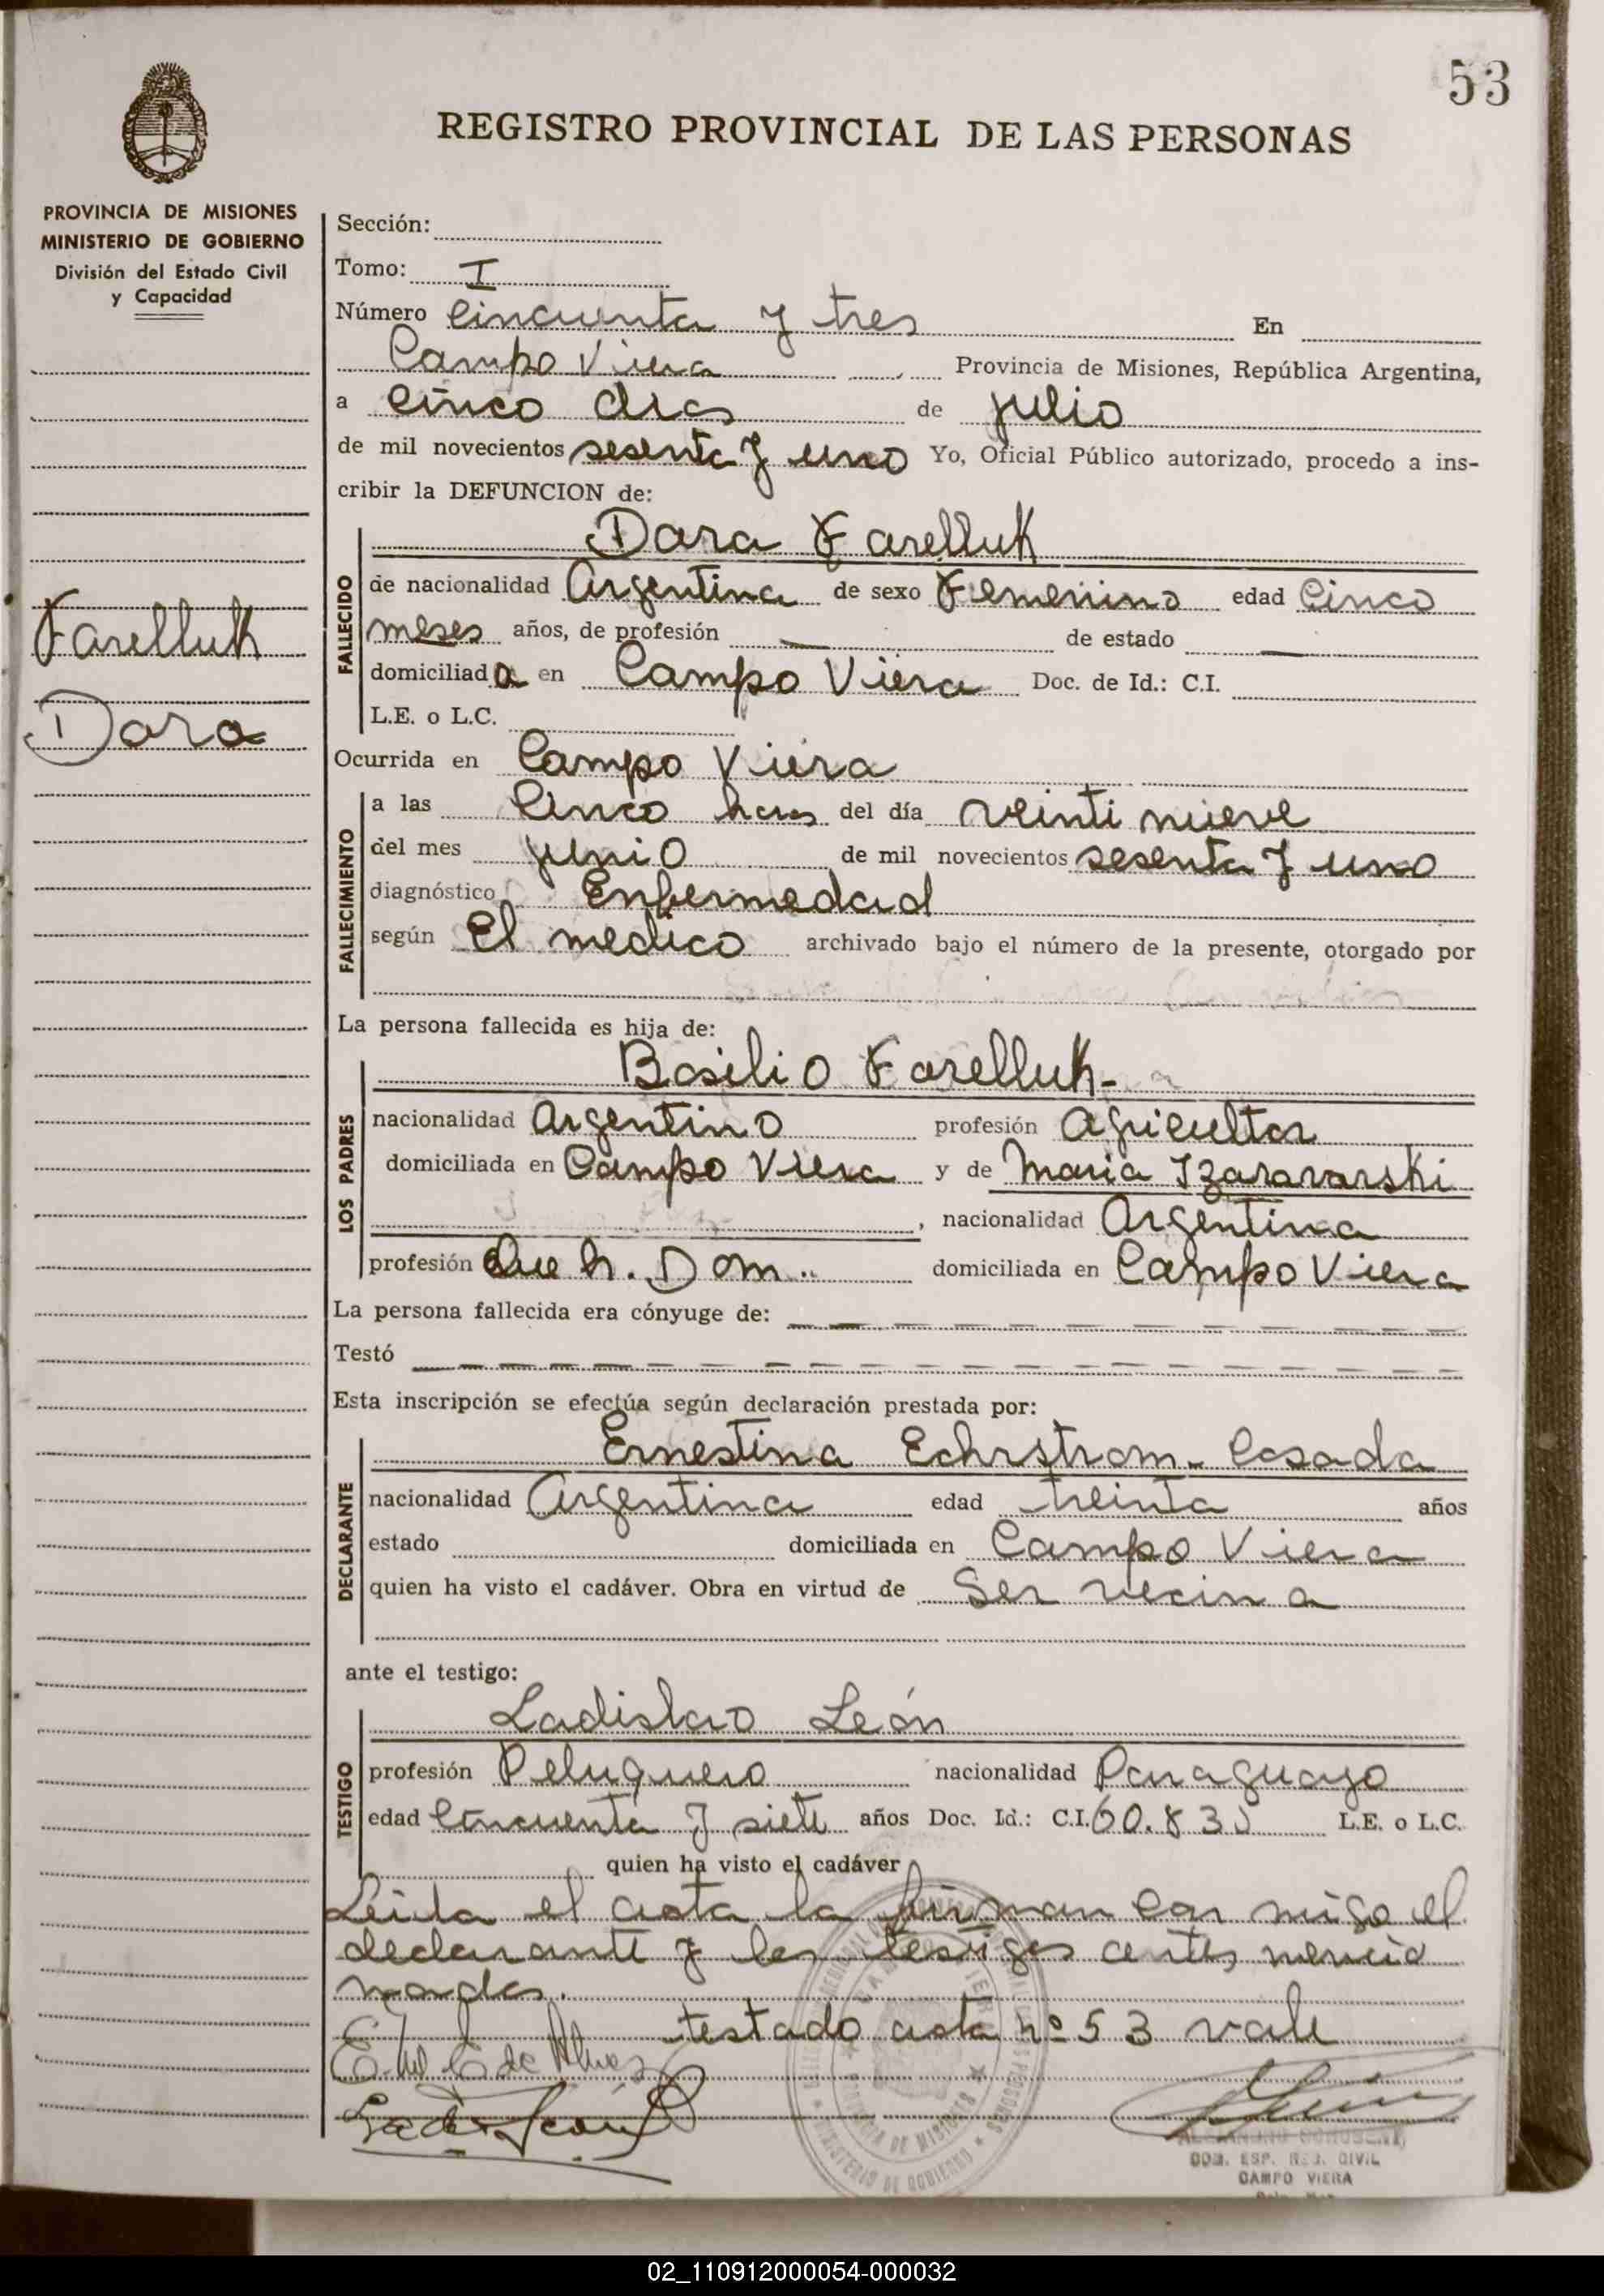 53
REGISTRO PROVINCIAL DE LAS PERSONAS
PROVINCIA DE MISIONES
MINISTERIO DE GOBIERNO
División del Estado Civil
y Capacidad
Farelluk
Dora
Sección:
Tomo: I
Número Cincuenta y tres En
Campo Viera Provincia de Misiones, República Argentina,
a cinco dias de julio
de mil novecientos sesenta y uno Yo, Oficial Público autorizado, procedo a ins-
cribir la DEFUNCION de:
FALLECIDO
Dora Farelluk
de nacionalidad Argentina de sexo Femenino edad Cinco
meses años, de profesión — de estado —
domiciliada en Campo Viera Doc. de Id.: C.I.
L.E. o L.C.
Ocurrida en Campo Viera
FALLECIMIENTO
a las Cinco horas del día veinti nueve
del mes junio de mil novecientos sesenta y uno
diagnóstico Enfermedad
según El medico archivado bajo el número de la presente, otorgado por
La persona fallecida es hija de:
LOS PADRES
Basilio Farelluk-
nacionalidad Argentino profesión Agricultor
domiciliada en Campo Viera y de Maria Izararvarski
, nacionalidad Argentina
profesión Que h. Dom. domiciliada en Campo Viera
La persona fallecida era cónyuge de: — — — — — — — — — — — —
Testó — — — — — — — — — — — — — — — — — — —
Esta inscripción se efectúa según declaración prestada por:
DECLARANTE
Ernestina Echrstrom - Casada
nacionalidad Argentina edad treinta años
estado domiciliada en Campo Viera
quien ha visto el cadáver. Obra en virtud de Ser vecina
ante el testigo:
TESTIGO
Ladislao León
profesión Peluquero nacionalidad Paraguayo
edad Cincuenta y siete años Doc. Id.: C.I. 60.835 L.E. o L.C.
quien ha visto el cadáver
Leida el acta la firman con migo el
declarante y los testigos antes mencio
nados.
testado acta nº 53 vale
E. de Alvez
PROVINCIA DE MISIONES
MINISTERIO DE GOBIERNO
COM. ESP. REG. CIVIL
CAMPO VIERA
02_110912000054-000032